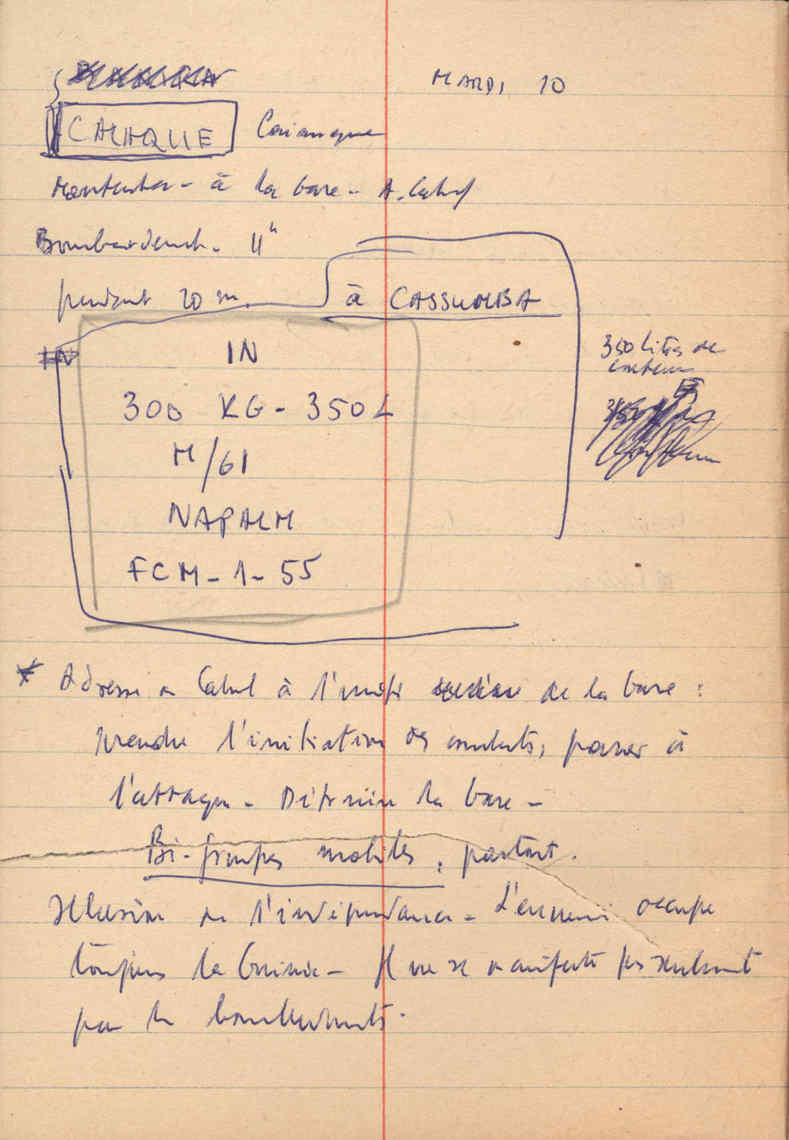 MARDI 10
CALAQUE
à la base - A. Cabral
Bombardement. 11h
pendant 20 m. à CASSUMBA
IN
350 litres de
300 KG - 350 L
M/61
NAPALM
FCM - 1 - 55
* Cabral à l'unité de la base :
prendre l'initiative des combats, passer à
l'attaque - Détruire la base -
Bi-groupes mobiles, partout.
Illusion de l'indépendance - L'ennemi occupe
toujours la Guinée - Il ne se manifeste pas seulement
par les bombardements.